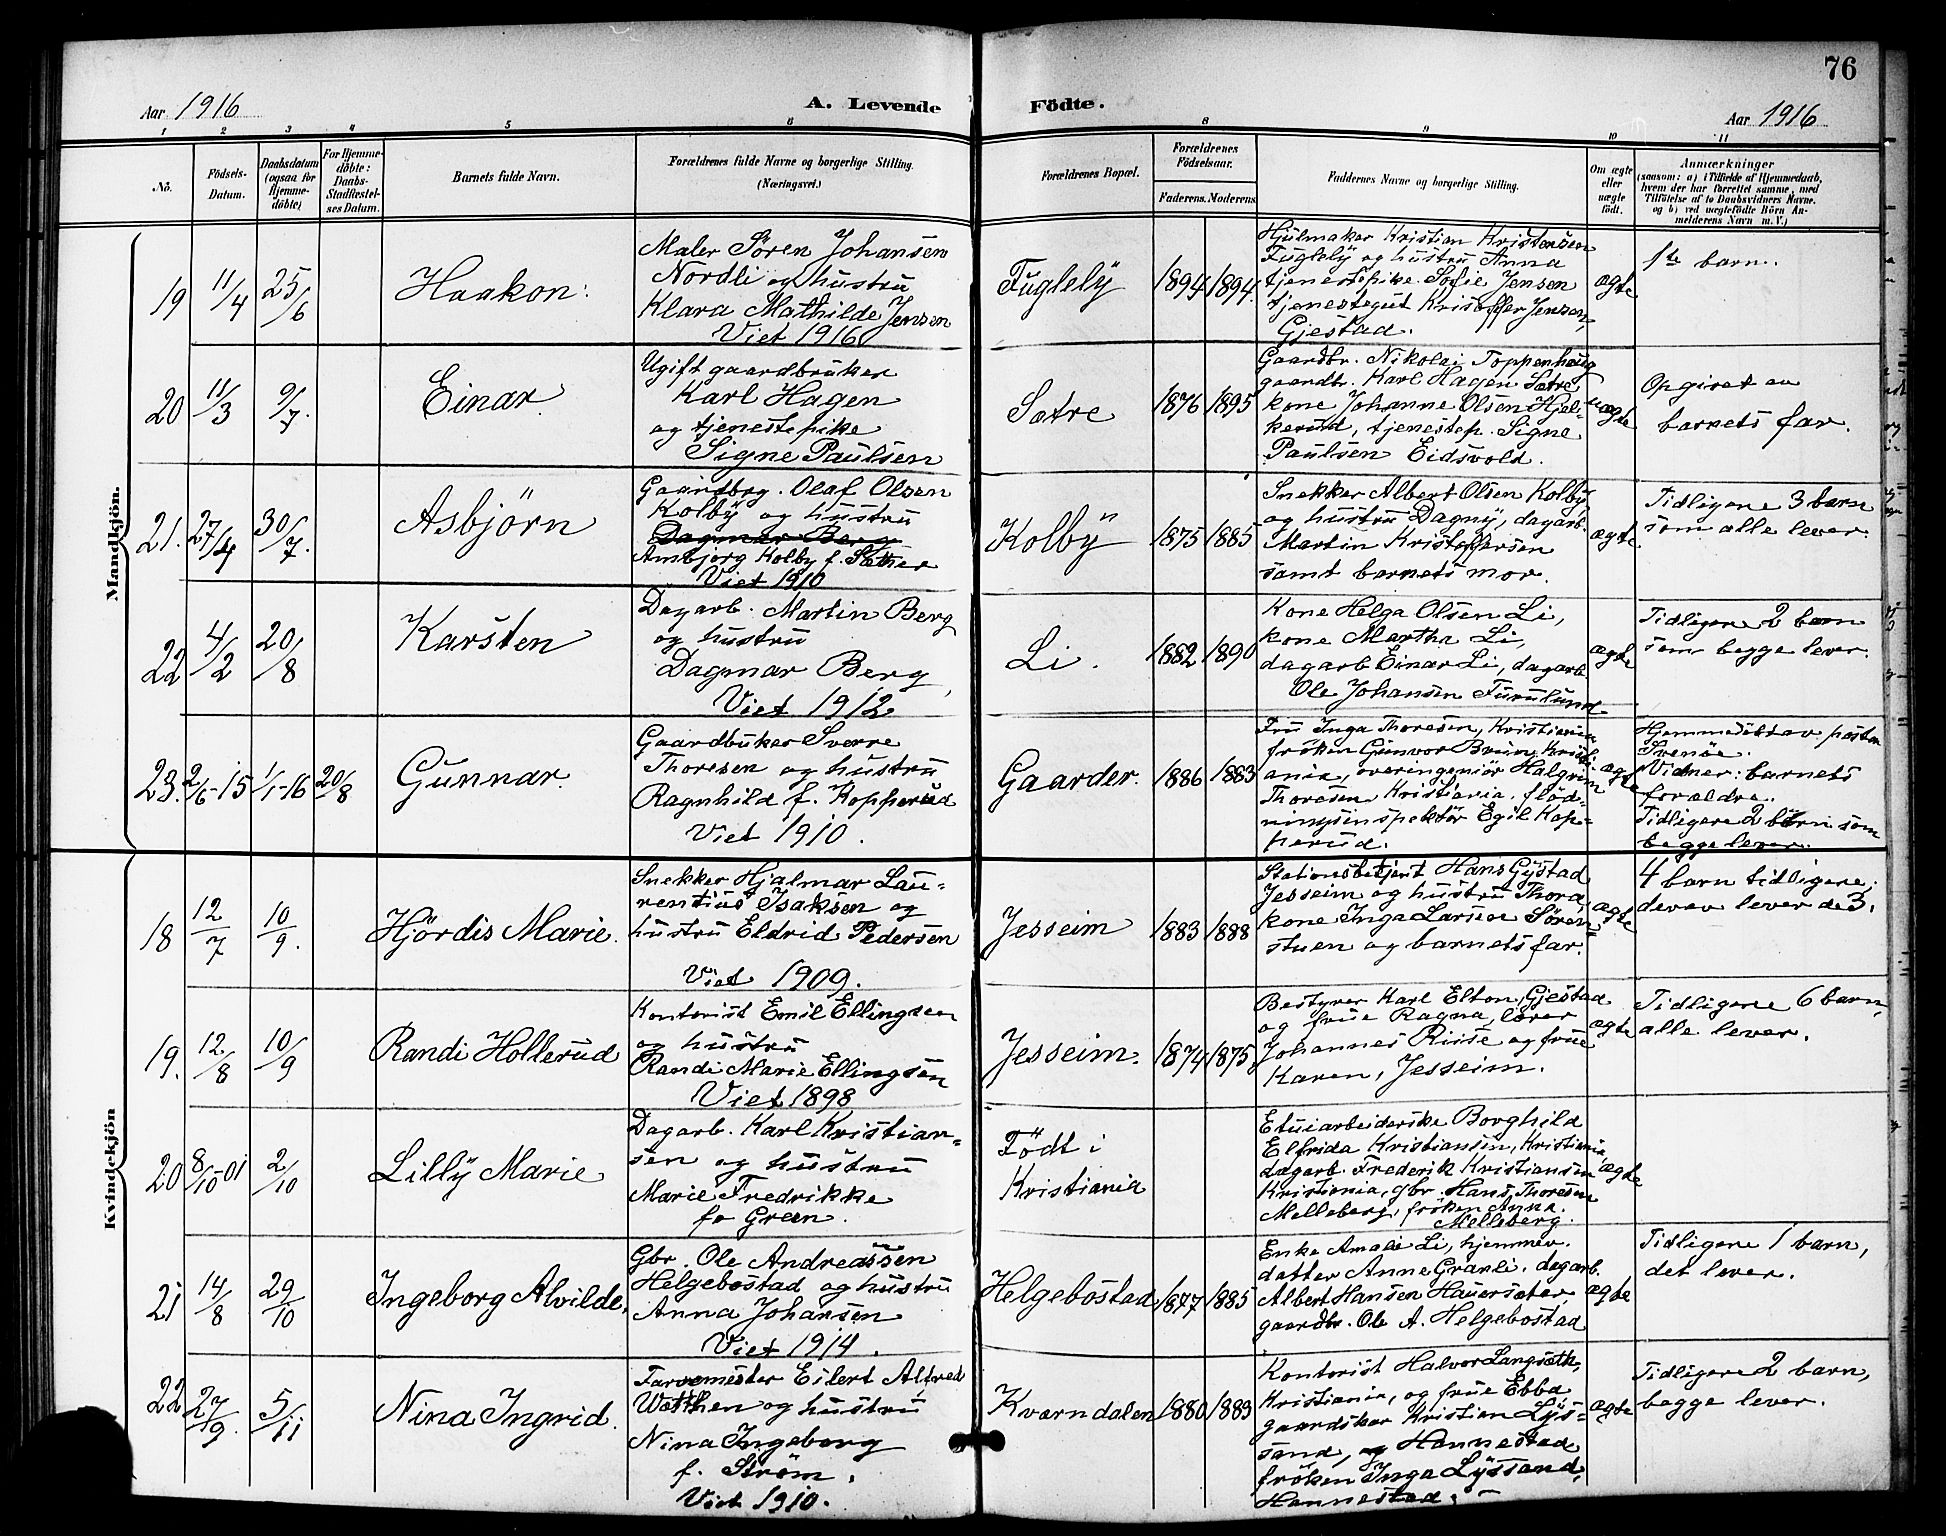 76
Aar 1916
A. Levende
Födte.
Aar 1916
1 2 3 4 5 6 8 9 10 11
Nô.
Födsels-
Datum.
Daabsdatum
(ogsaa for
Hjemme-
döbte)
For Hjemme-
döbte:
Daabs-
Stadfæstel-
ses Datum.
Barnets fulde Navn.
Forældrenes fulde Navne og borgerlige Stilling.
(Næringsvei.)
Forældrenes Bopæl.
Forældrenes
Födselsaar.
Faderens. Moderens.
Faddernes Navne og borgerlige Stilling.
Om ægte
eller
uægte
födt.
Anmærkninger
(saasom: a) i Tilfælde af Hjemmedaab,
hvem der har forrettet samme, med
Tilföielse af to Daabsvidners Navne,
og b) ved uægtefödte Börn An-
melderens Navn m. V.)
Mandkjön.
19
11/4
25/6
Haakon
Maler Sören Johansen
Nordli og hustru
Klara Mathilde Jensen
Viet 1916
Fuglely
1894
1894
Hjulmaker Kristian Kristensen
Fuglely og hustru Anna
tjenestepike Sofie Jensen
tjenestegut Kristoffer Jensen,
Gjestad.
ægte
1ste barn.
20
11/3
9/7.
Einar
Ugift gaardbruker
Karl Hagen
og tjenestepike
Signe Paulsen
Sætre
1876
1895
Gaardbr. Nikolai Toppenhaug
gaardbr. Karl Hagen Sætre,
kone Johanne Olsen Hjel-
kerud, tjenestep. Signe
Paulsen Eidsvold.
uægte
Opgivet av
barnets far.
21.
27/4
30/7.
Asbjörn
Gaardbrg. Olaf Olsen
Kolby og hustru
Dagmar Berg
Ambjorg Kolby f. Sæther
Viet 1910
Kolby
1875
1885
Snekker Albert Olsen Kolby,
og hustru Dagny, dagarb.
Martin Kristoffersen
samt barnets mor.
ægte
Tidligere 3 barn
som alle lever.
22
4/2
20/8
Karsten
Dagarb. Martin Berg
og hustru
Dagmar Berg
Viet 1912
Li.
1882
1890
Kone Helga Olsen Li,
kone Martha Li,
dagarb Einar Li, dagarb
Ole Johansen Furulund
ægte
Tidligere 2 barn
som begge lever.
23.
2/6-15
1/1-16
20/8
Gunnar.
Gaardbuker Sverre
Thoresen og hustru
Ragnhild f. Kopperud
Viet 1910.
Gaarder.
1886
1883
Fru Inga Thoresen, Kristiania
fröken Gunvor Bruun, Kristi-
ania, overingeniör Halgrim
Thoresen Kristiania, flöd-
ningsinspektör Egil Kop-
perud.
ægte
Hjemmedöbt av pastor
Svenöe.
Vidner: barnets
forældre.
Tidligere 2 börn som
begge lever.
Kvindekjön
18
12/7
10/9.
Hjördis Marie.
Snekker Hjalmar Lau-
rentius Isaksen og
hustru Eldrid Pedersen
Viet 1909.
Jesseim
1883
1888
Stationsbetjent Hans Gystad
Jesseim og hustru Thora,
kone Inga Larsen Sören-
stuen og barnets far.
ægte
4 barn tidligere;
derav lever de 3.
19.
12/8
10/9
Randi Hollerud
Kontorist Emil Ellingsen
og hustru
Randi Marie Ellingsen
Viet 1898
Jesseim.
1874
1875
Bestyrer Karl Elton, Gjestad
og frue Ragna, lærer
Johannes Riise og frue
Karen, Jesseim.
ægte
Tidligere 6 barn,
alle lever.
20
8/10-01
2/10
Lilly Marie
Dagarb. Karl Kristian-
sen og hustru
Marie Fredrikke
fø Green.
Födt i
Kristiania
Etuiarbeiderske Borghild
Elfrida Kristiansen, Kristiania
dagarb. Frederik Kristiansen
Kristiania, gbr. Hans Thoresen
Melleberg, fröken Anna
Melleberg.
ægte
21
14/8
29/10
Ingeborg Alvilde.
Gbr. Ole Andreassen
Helgebostad og hustru
Anna Johansen
Viet 1914.
Helgebostad
1877
1885
Enke Amalie Li, hjemmev.
datter Anne Granli, dagarb.
Albert Hansen Hauersæter,
gaardbr. Ole A. Helgebostad
ægte
Tidligere 1 barn,
det lever.
22
27/9.
5/11
Nina Ingrid.
Farvemester Eilert Alfred
Watthen og hustru
Nina Ingeborg
f. Ström.
Viet 1910.
Kværndalen
1880
1883
Kontorist Halvor Langseth,
Kristiania, og frue Ebba
gaardsker Kristian Lys-
sand, og Hannestad
fröken Inga Lyssand,
Hannestad.
ægte
Tidligere 2 barn,
begge lever.